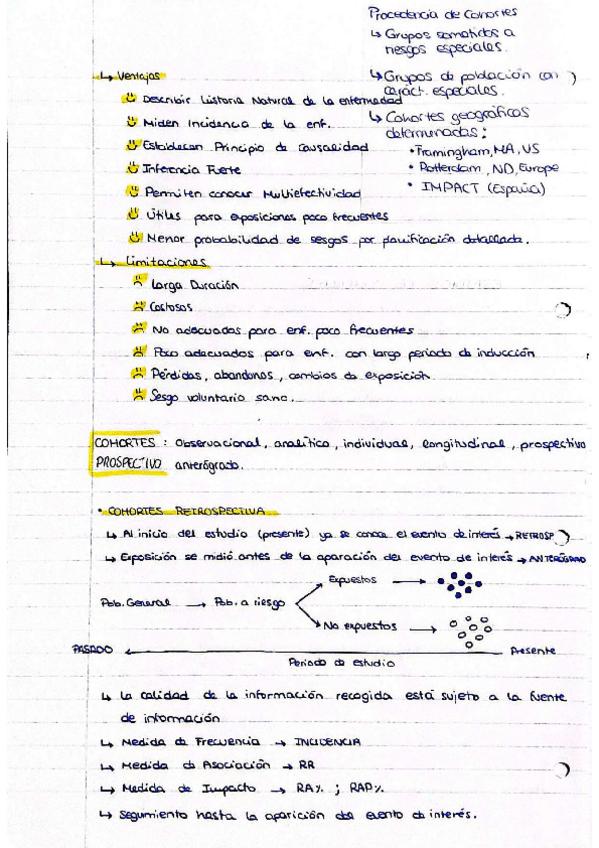 Procedencia de Cohortes
↳ Grupos sometidos a
riesgos especiales.
↳ Grupos de población con
caráct. especiales.
↳ Cohortes geográficas
determinadas:
• Framingham, MA, US
• Rotterdam, ND, Europe
• IMPACT (España)
↳ Ventajas
Describir Historia Natural de la enfermedad
Miden Incidencia de la enf.
Establecen Principio de Causalidad
Inferencia Fuerte
Permiten conocer Multiefectividad
Útiles para exposiciones poco frecuentes
Menor probabilidad de sesgos por planificación detallada.
↳ Limitaciones
Larga Duración
Costosos
No adecuadas para enf. poco frecuentes
Poco adecuados para enf. con largo periodo de inducción
Pérdidas, abandonos, cambios de exposición
Sesgo voluntario sano.
COHORTES : Observacional, analítico, individual, longitudinal, prospectivo
PROSPECTIVO anterógrado.
• COHORTES RETROSPECTIVA
↳ Al inicio del estudio (presente) ya se conoce el evento de interés → RETROSP
↳ Exposición se midió antes de la aparación del evento de interés → ANTERÓGRAD
Expuestos
Pob. General → Pob. a riesgo
No expuestos
PASADO Presente
Periodo de estudio
↳ La calidad de la información recogida está sujeto a la fuente
de información
↳ Medida de Frecuencia → INCIDENCIA
↳ Medida de Asociación → RR
↳ Medida de Impacto → RA% ; RAP%
↳ Seguimiento hasta la aparición del evento de interés.